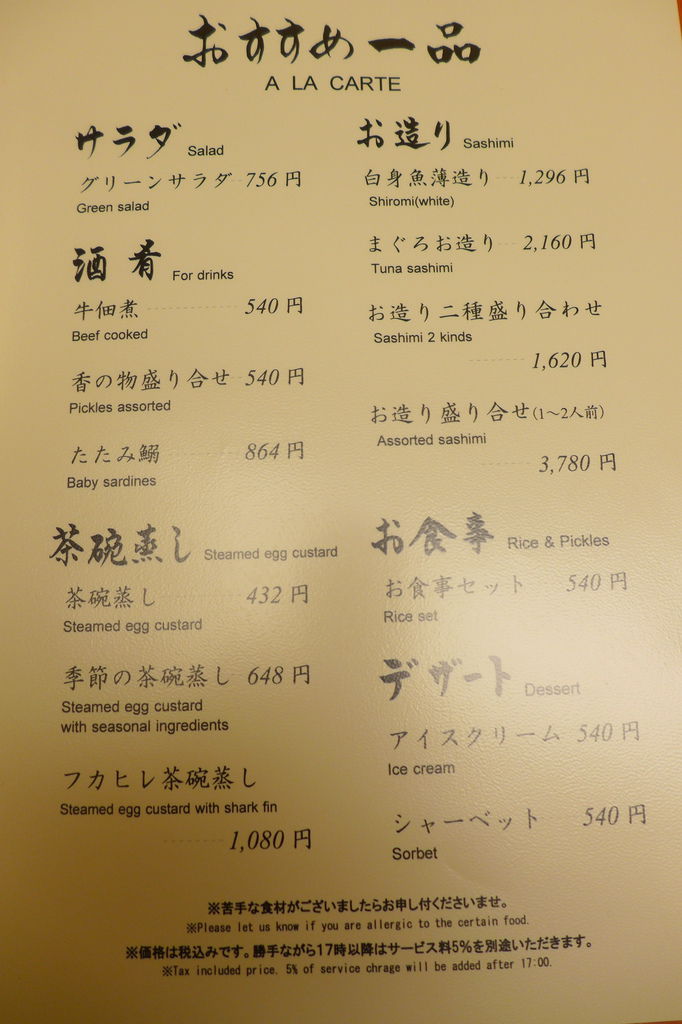 おすすめ一品
A LA CARTE
サラダ Salad
グリーンサラダ 756 円
Green salad
酒肴 For drinks
牛佃煮 540 円
Beef cooked
香の物盛り合せ 540 円
Pickles assorted
たたみ鰯 864 円
Baby sardines
茶碗蒸し Steamed egg custard
茶碗蒸し 432 円
Steamed egg custard
季節の茶碗蒸し 648 円
Steamed egg custard
with seasonal ingredients
フカヒレ茶碗蒸し
Steamed egg custard with shark fin
1,080 円
お造り Sashimi
白身魚薄造り 1,296 円
Shiromi(white)
まぐろお造り 2,160 円
Tuna sashimi
お造り二種盛り合わせ
Sashimi 2 kinds
1,620 円
お造り盛り合せ(1～2人前)
Assorted sashimi
3,780 円
お食事 Rice & Pickles
お食事セット 540 円
Rice set
デザート Dessert
アイスクリーム 540 円
Ice cream
シャーベット 540 円
Sorbet
※苦手な食材がございましたらお申し付くださいませ。
※Please let us know if you are allergic to the certain food.
※価格は税込みです。勝手ながら17時以降はサービス料5%を別途いただきます。
※Tax included price. 5% of service chrage will be added after 17:00.